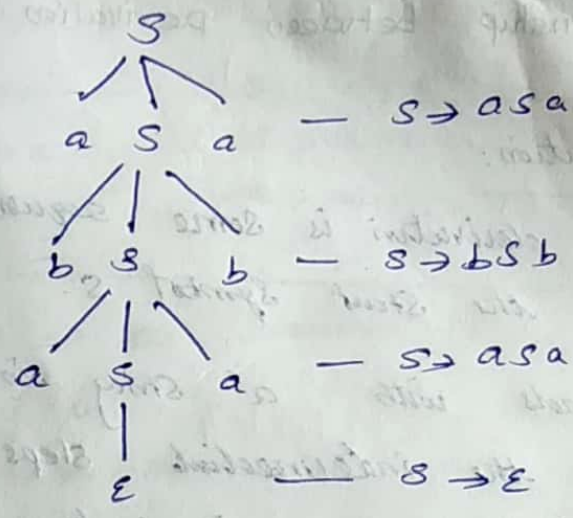 S
a S a — S → aSa
b S b — S → bSb
a S a — S → aSa
ε — S → ε